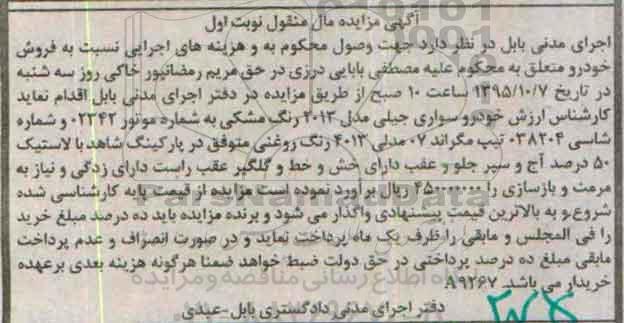 آگهی مزایده مال منقول نوبت اول
اجرای مدنی بابل در نظر دارد جهت وصول محکوم به و هزینه های اجرایی نسبت به فروش
خودرو متعلق به محکوم علیه مصطفی بابایی درزی در حق مریم رمضانپور خاکی روز سه شنبه
در تاریخ ۱۳۹۵/۱۰/۷ ساعت ۱۰ صبح از طریق مزایده در دفتر اجرای مدنی بابل اقدام نماید
کارشناس ارزش خودرو سواری جیلی مدل ۲۰۱۳ رنگ مشکی به شماره موتور ۰۲۳۴۲ و شماره
شاسی ۰۳۸۲۰۴ تیپ مگراند ۰۷ مدلی ۴۰۱۳ رنگ روغنی متوقف در پارکینگ شاهد با لاستیک
۵۰ درصد آج و سپر جلو و عقب دارای خش و خط و گلگیر عقب راست دارای زدگی و نیاز به
مرمت و بازسازی را ۴۵۰۰۰۰۰۰۰ ریال برآورد نموده است مزایده از قیمت پایه کارشناسی شده
شروع و به بالاترین قیمت پیشنهادی واگذار می شود و برنده مزایده باید ده درصد مبلغ خرید
را فی المجلس و مابقی را ظرف یک ماه پرداخت نماید و در صورت انصراف و عدم پرداخت
مابقی مبلغ ده درصد پرداختی در حق دولت ضبط خواهد ضمنا هرگونه هزینه بعدی برعهده
خریدار می باشد. ۸۹۲۶۷
دفتر اجرای مدنی دادگستری بابل-عبدی
ParsNamadData
پایگاه اطلاع رسانی مناقصه و مزایده